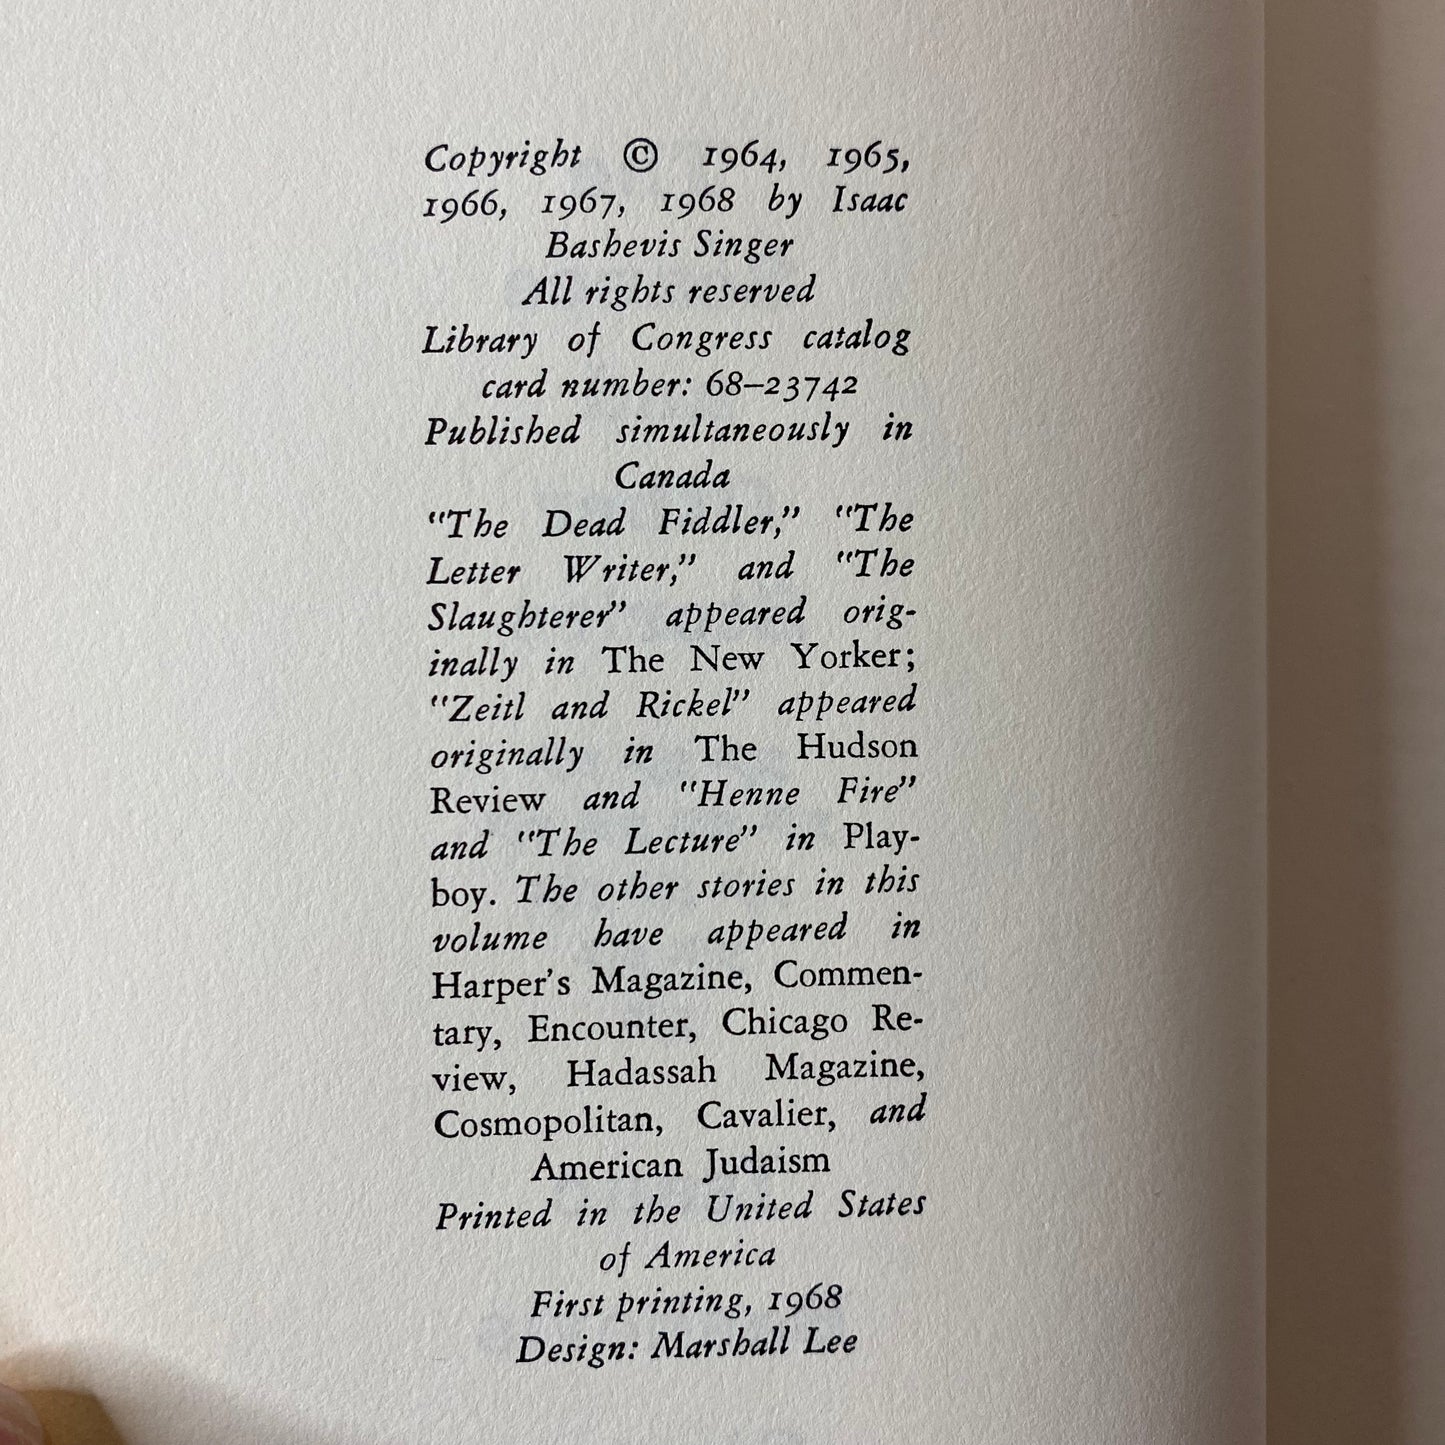 Copyright © 1964, 1965,
1966, 1967, 1968 by Isaac
Bashevis Singer
All rights reserved
Library of Congress catalog
card number: 68–23742
Published simultaneously in
Canada
"The Dead Fiddler," "The
Letter Writer," and "The
Slaughterer" appeared orig-
inally in The New Yorker;
"Zeitl and Rickel" appeared
originally in The Hudson
Review and "Henne Fire"
and "The Lecture" in Play-
boy. The other stories in this
volume have appeared in
Harper's Magazine, Commen-
tary, Encounter, Chicago Re-
view, Hadassah Magazine,
Cosmopolitan, Cavalier, and
American Judaism
Printed in the United States
of America
First printing, 1968
Design: Marshall Lee